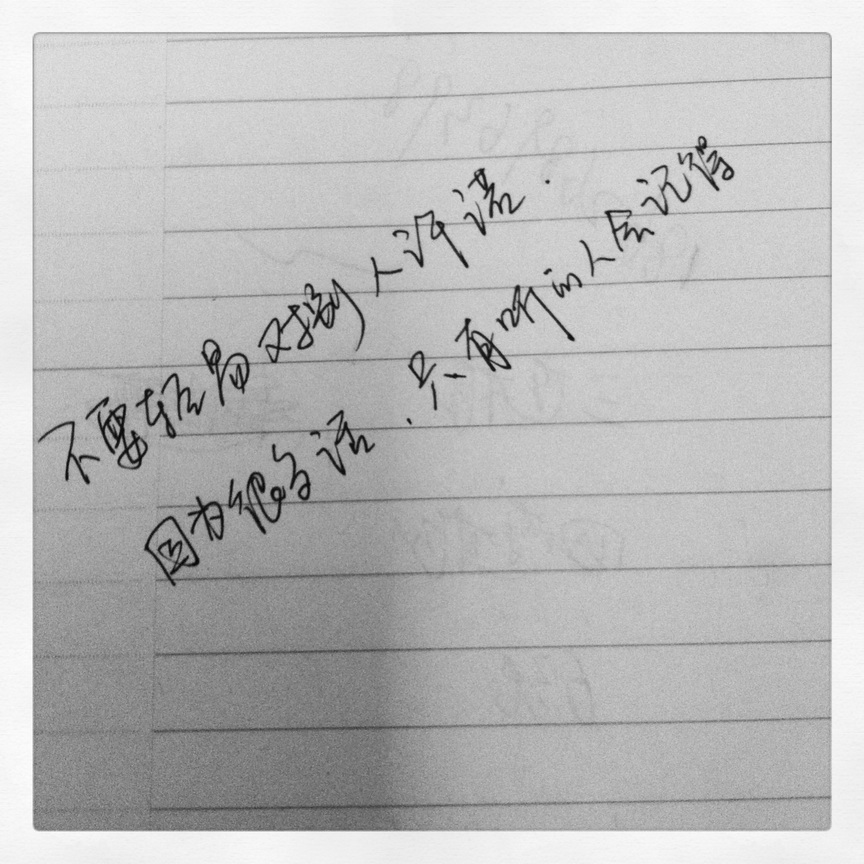 不要轻易对别人许诺.
因为很多话.只有听的人会记得